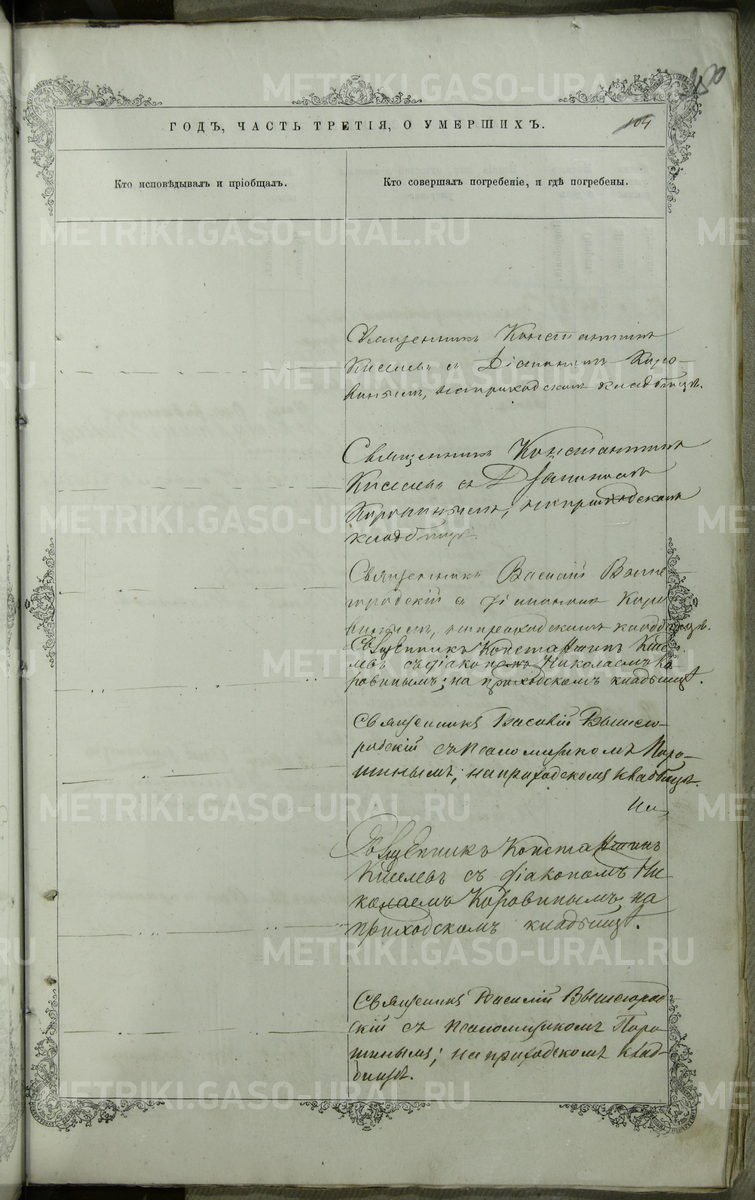 ГОДЪ, ЧАСТЬ ТРЕТІЯ, О УМЕРШИХЪ.
104
Кто исповѣдывалъ и пріобщалъ.
Кто совершалъ погребеніе, и гдѣ погребены.
Священникъ Константинъ
Киселевъ съ Діакономъ Коро-
винымъ, на приходскомъ кладбищѣ.
Священникъ Константинъ
Киселевъ съ Діакономъ
Коровинымъ, на приходскомъ
кладбищѣ.
Священникъ Василій Выше-
городскій с діакономъ Коро-
винымъ, на приходскомъ кладбищѣ.
Священникъ Константин Кисе-
левъ съ діакономъ Николаемъ Ко
ровинымъ; на приходскомъ кладбищѣ.
Священникъ Василій Вышего-
родскій съ псаломщикомъ Поро-
шинымъ; на приходскомъ кладбищѣ.
На
Священникъ Константинъ
Киселевъ съ діакономъ Ни-
колаемъ Коровинымъ на
приходскомъ кладбищѣ.
Священикъ Василій Вышегород-
скій съ псаломщикомъ Поро-
шинымъ; на приходскомъ клад-
бищѣ.
METRIKI.GASO-URAL.RU